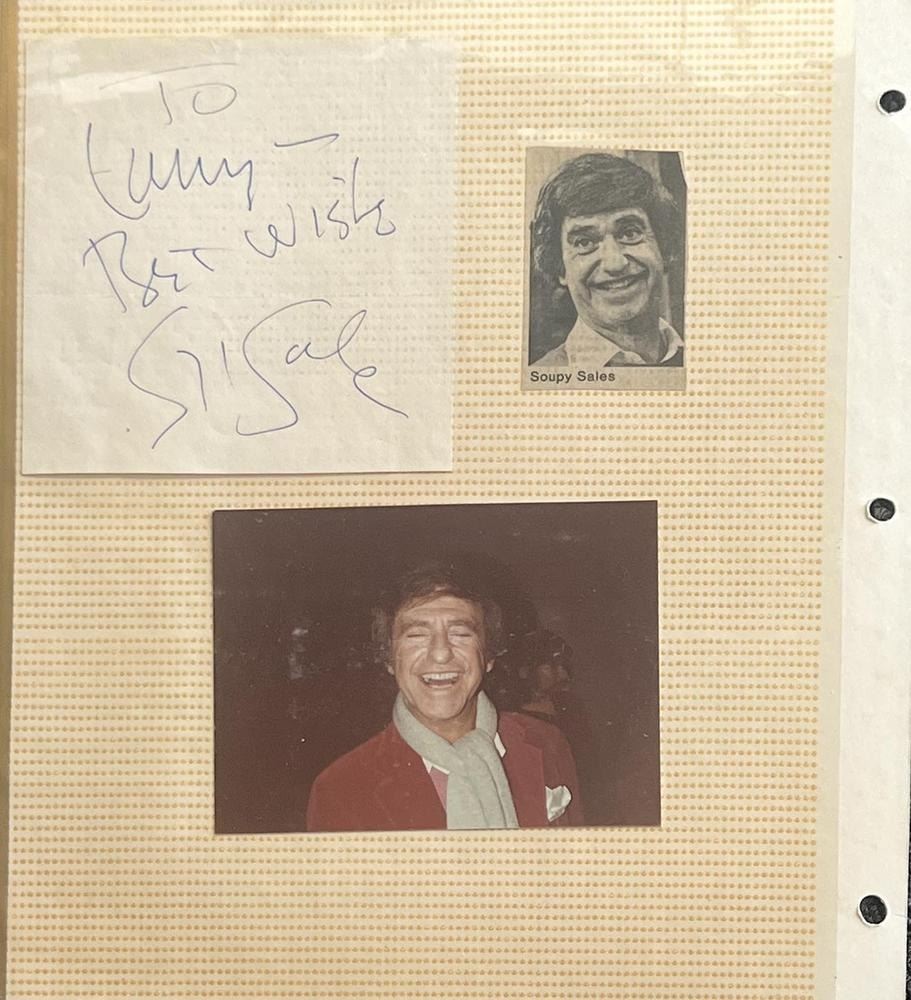 TO
Best Wishes
Soupy Sales
Soupy Sales